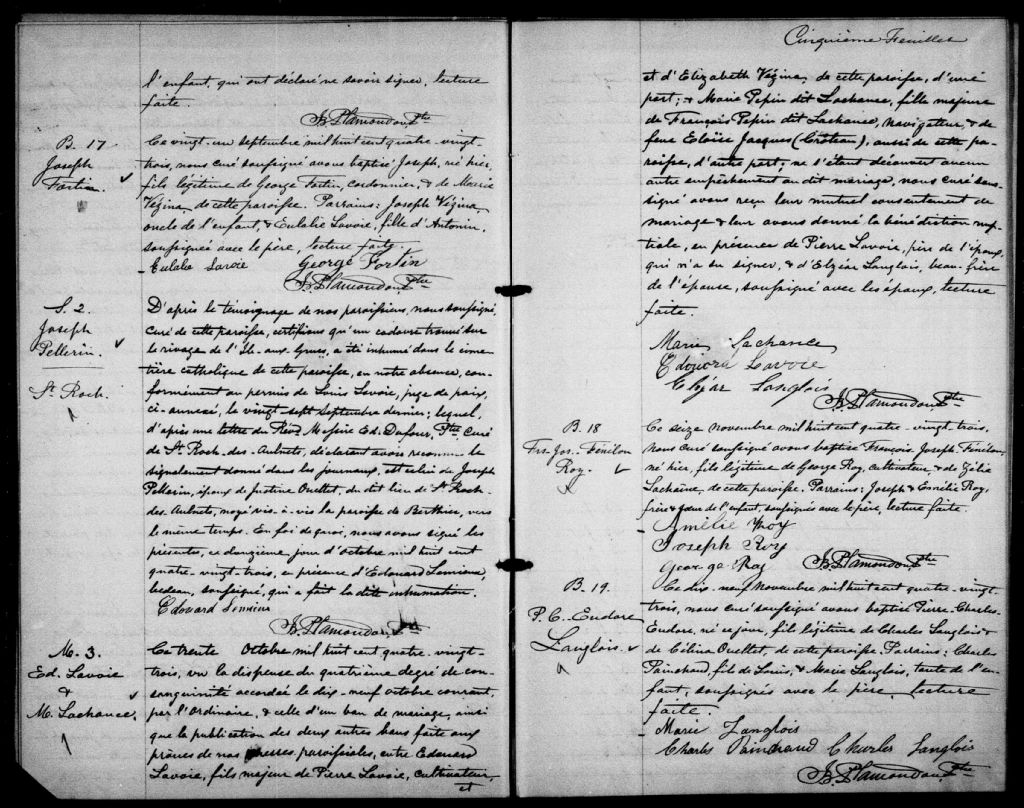 l'enfant, qui ont déclaré ne savoir signer, lecture
faite.
J.B. Plamondon, Ptre
B. 17
Joseph
Fortin.
Ce vingt-un septembre mil huit cent quatre-vingt-
trois, nous curé soussigné avons baptisé Joseph, né hier,
fils légitime de George Fortin, cordonnier, & de Marie
Vézina, de cette paroisse. Parrains: Joseph Vézina,
oncle de l'enfant, & Eulalie Lavoie, fille d'Antonin,
soussignés avec le père, lecture faite.
Eulalie Lavoie George Fortin
J.B. Plamondon, Ptre
S. 2.
Joseph
Pellerin.
St. Roch.
D'après le témoignage de nos paroissiens, nous soussigné,
curé de cette paroisse, certifions qu'un cadavre trouvé sur
le rivage de l'Ile-aux-Grues, a été inhumé dans le cime-
tière catholique de cette paroisse, en notre absence, con-
formément au permis de Louis Lavoie, juge de paix,
ci-annexé, le vingt-sept septembre dernier; lequel,
d'après une lettre du Révd Messire Ed. Dufour, Ptre, Curé
de St. Roch-des-Aulnets, déclarant avoir reconnu le
signalement donné dans les journaux, est celui de Joseph
Pellerin, époux de Justine Ouellet, du dit lieu de St. Roch-
des-Aulnets, noyé vis-à-vis la paroisse de Berthier, vers
le même temps. En foi de quoi, nous avons signé les
présentes, ce douzième jour d'octobre mil huit cent
quatre-vingt-trois, en présence d'Edouard Lemieux,
bedeau, soussigné, qui a fait la dite inhumation.
Edouard Lemieux
J.B. Plamondon, Ptre
M. 3.
Ed. Lavoie
&
M. Lachance.
Ce trente Octobre mil huit cent quatre-vingt-
trois, vu la dispense du quatrième degré de con-
sanguinité accordée le dix-neuf octobre courant,
par l'Ordinaire, & celle d'un ban de mariage, ainsi
que la publication des deux autres bans faite aux
prônes de nos messes paroissiales, entre Edouard
Lavoie, fils majeur de Pierre Lavoie, cultivateur,
et
Cinquième Feuillet
et d'Elizabeth Vézina, de cette paroisse, d'une
part; & Marie Pepin dit Lachance, fille majeure
de François Pepin dit Lachance, navigateur, & de
feue Eloïse Jacques (Croteau), aussi de cette pa-
roisse, d'autre part; ne s'étant découvert aucun
autre empêchement au dit mariage, nous curé sous-
signé avons reçu leur mutuel consentement de
mariage & leur avons donné la bénédiction nup-
tiale, en présence de Pierre Lavoie, père de l'époux,
qui n'a su signer, & d'Elzéar Langlois, beau-frère
de l'épouse, soussigné avec les époux, lecture
faite.
Marie Lachance
Edouard Lavoie
Elzéar Langlois
J.B. Plamondon, Ptre
B. 18
Frs. Jos. Fénilon
Roy.
Ce seize novembre mil huit cent quatre-vingt-trois,
Nous curé soussigné avons baptisé François Joseph Fénilon,
né hier, fils légitime de George Roy, cultivateur, & de Zélie
Lachaine, de cette paroisse. Parrains: Joseph & Emélie Roy,
frère & soeur de l'enfant, soussignés avec le père, lecture faite.
Amélie Roy
Joseph Roy
George Roy J.B. Plamondon, Ptre
B. 19.
P. C. Eudore
Langlois.
Ce dix-neuf Novembre mil huit cent quatre-vingt-
trois, nous curé soussigné avons baptisé Pierre-Charles-
Eudore, né ce jour, fils légitime de Charles Langlois &
de Célina Ouellet, de cette paroisse. Parrains: Charles
Painchaud, fils de Louis, & Marie Langlois, tante de l'en-
fant, soussignés avec le père, lecture
faite.
Marie Langlois
Charles Painchaud Charles Langlois
J.B. Plamondon, Ptre